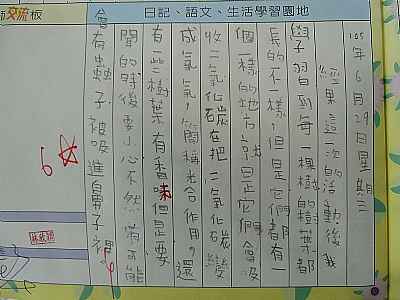 師交流板
日記、語文、生活學習園地
105年6月29日星期三
經果這一次的活動後我
學習到每一棵樹的樹葉都
長的不一樣,但是它們都有一
個一樣的地方,就是它們會吸
收二氧化碳在把二氧化碳變
成氧氣,簡稱光合作用。還
有一些樹葉有香味但是要
聞的時後要小心不然當可能
會有蟲子被吸進鼻子裡。
6☆